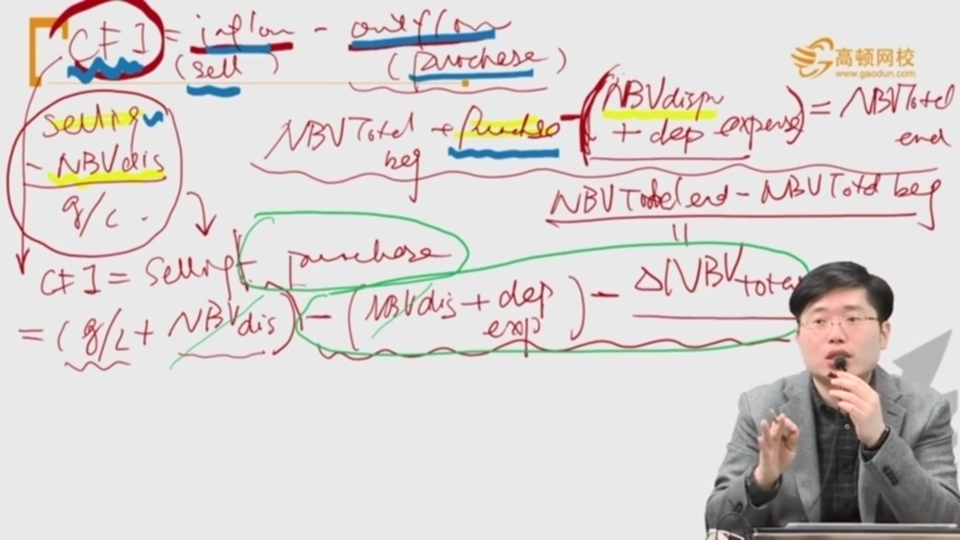 CFI = inflow - outflow
(sell) (purchase)
高顿网校
www.gaodun.com
selling
- NBVdis
g/L
NBVTotal beg + purchase - (NBVdispn + dep expense) = NBVTotal end
NBVTotal end - NBVTotal beg
=
CFI = Selling - purchase
= (g/L + NBVdis) - (NBVdis + dep exp) - ΔNBVtotal